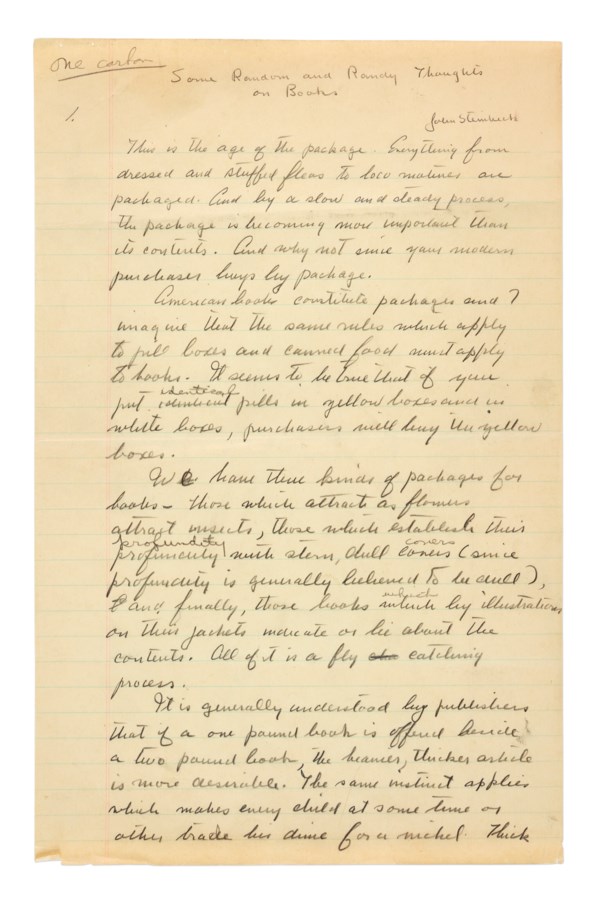 One carbon
Some Random and Randy Thoughts
on Books
1.
John Steinbeck
This is the age of the package. Everything from
dressed and stuffed fleas to loco motives are
packaged. And by a slow and steady process,
the package is becoming more important than
its contents. And why not since your modern
purchaser buys by package.
American books constitute packages and I
imagine that the same rules which apply
to pill boxes and canned food must apply
to books. It seems to be true that if you
identical
put identicul pills in yellow boxes and in
white boxes, purchasers will buy the yellow
boxes.
We have three kinds of packages for
books – those which attract as flowers
attract insects, those which establish their
profundity covers
profundity with stern, dull covers (since
profundity is generally believed to be dull),
and finally, those books which by illustrations
which
on their jackets indicate or lie about the
contents. All of it is a fly catching
process.
It is generally understood by publishers
that if a one pound book is offered beside
a two pound book, the heavier, thicker article
is more desirable. The same instinct applies
which makes every child at some time or
other trade his dime for a nickel. Thick